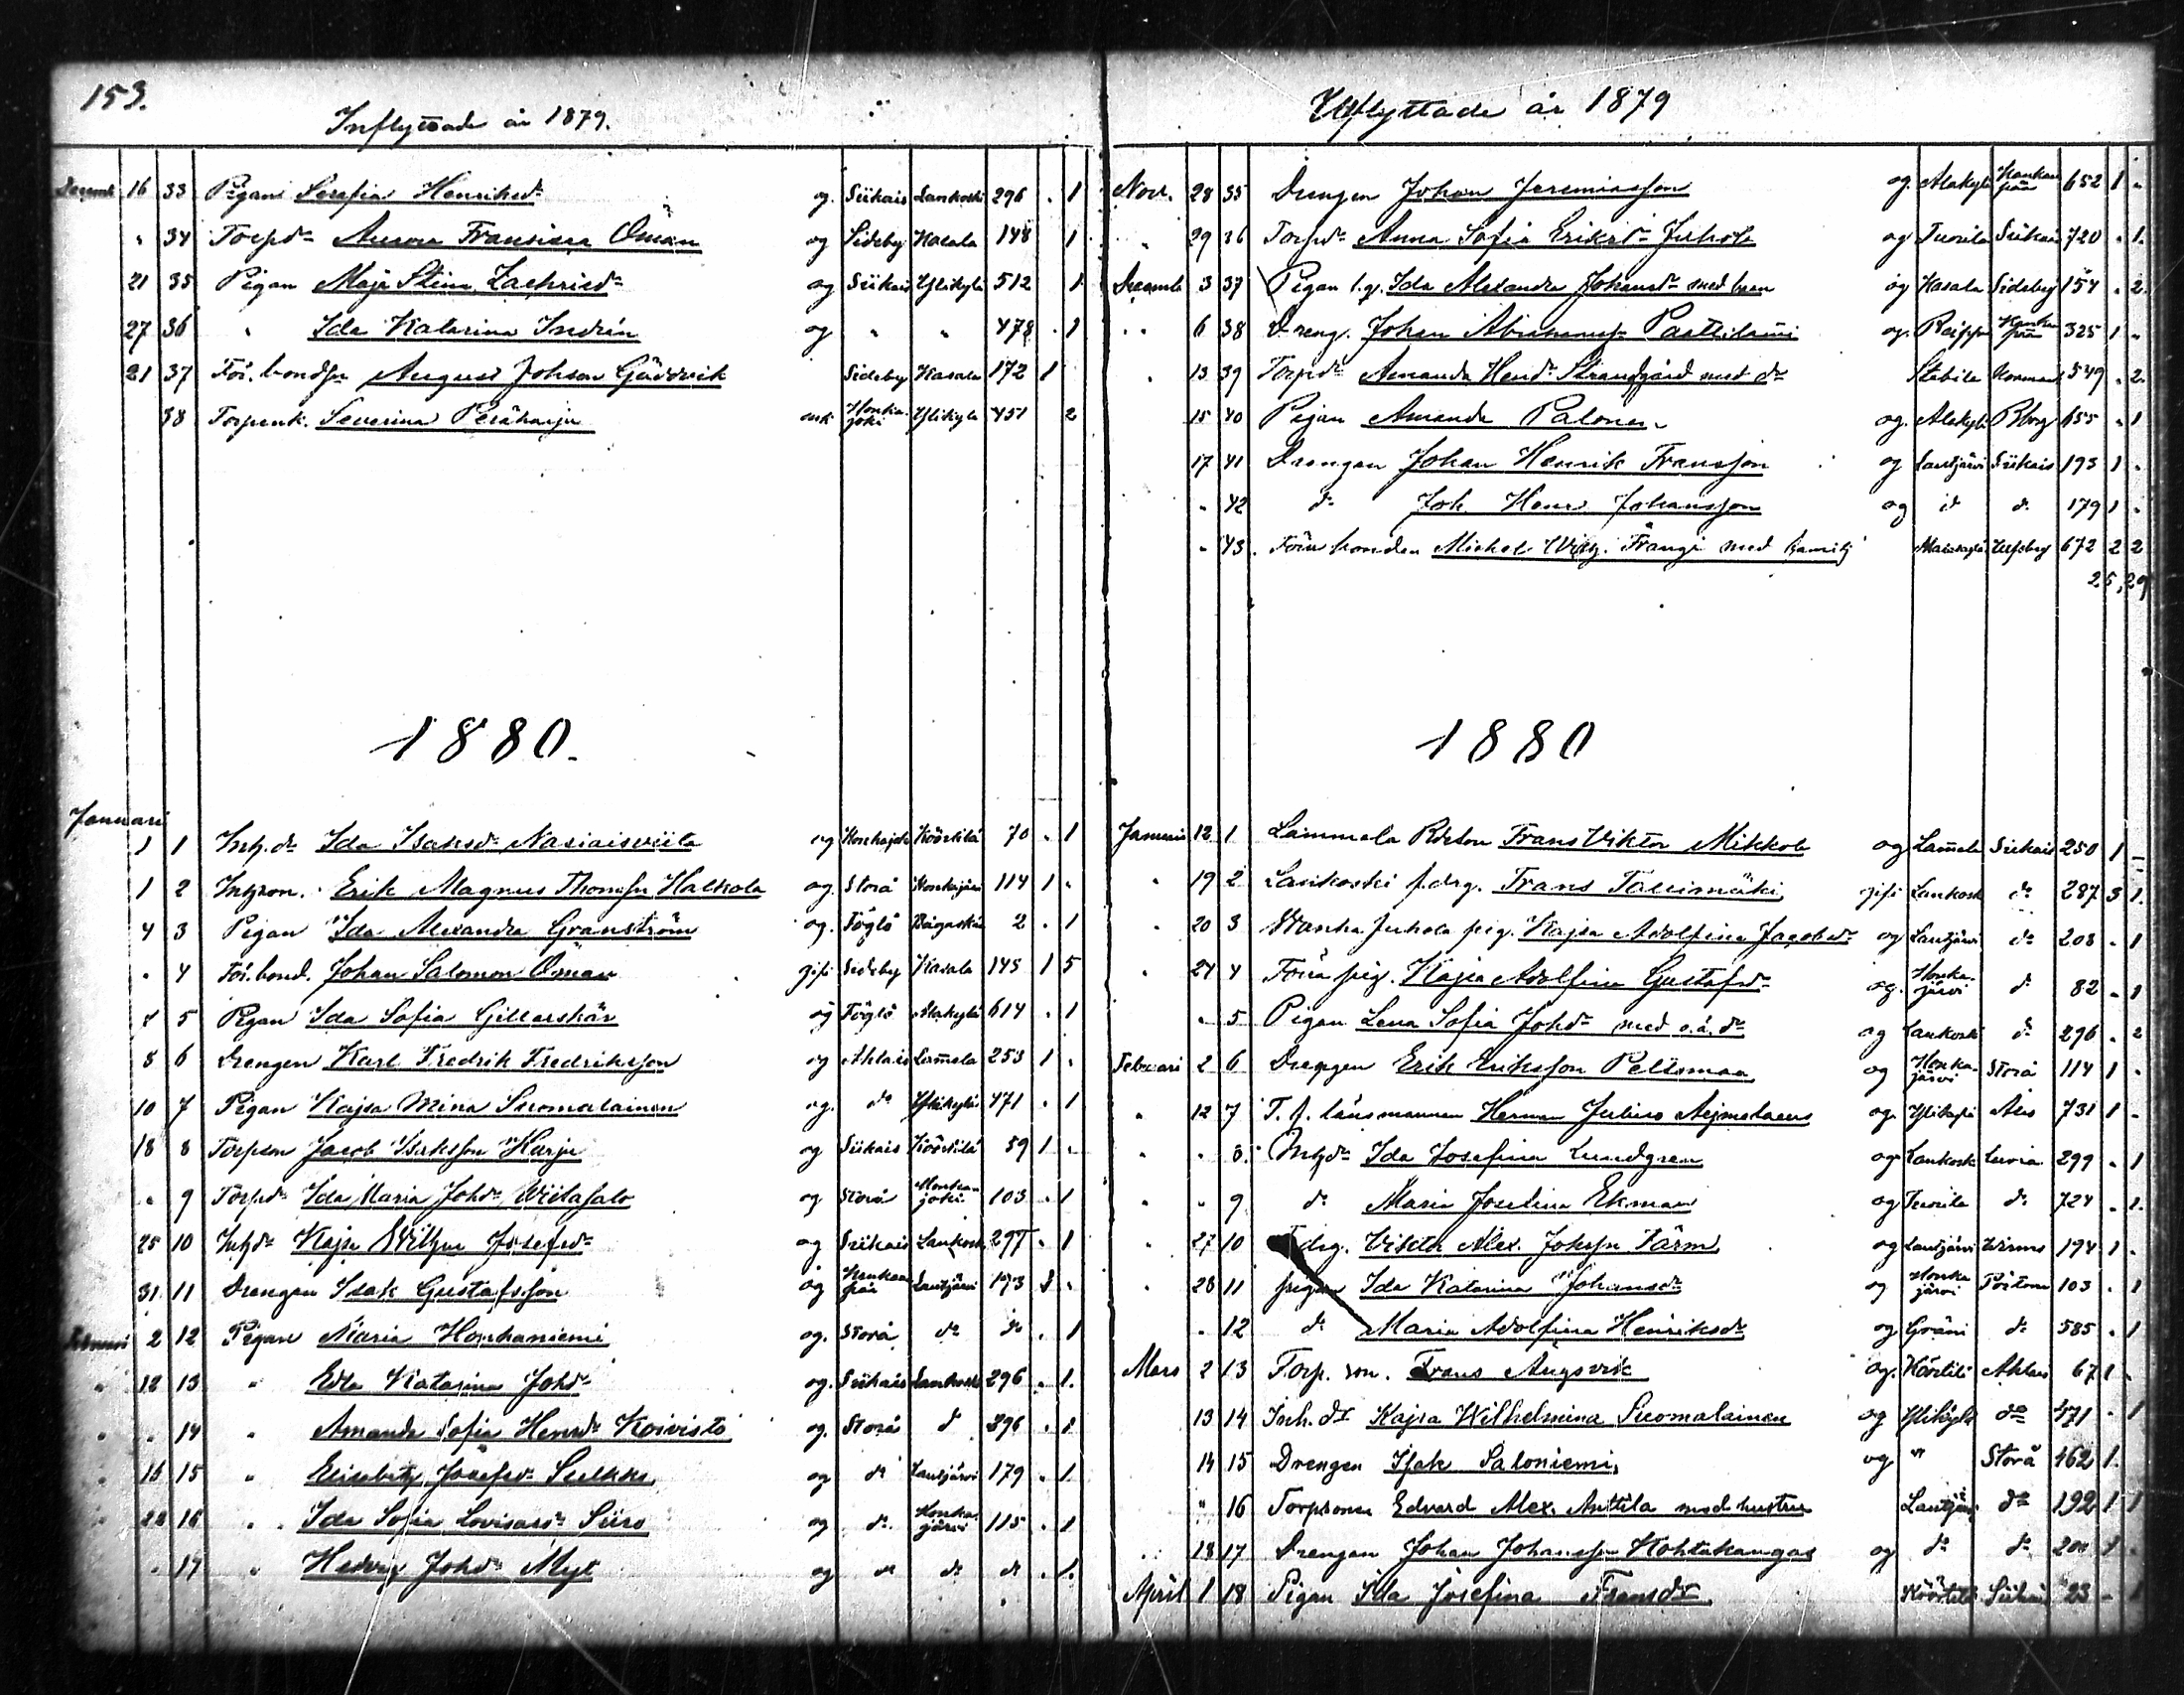 153.
Inflyttade år 1879.
Decemb 16 33 Pigan Serafia Henriksdr og. Siikais Lankoski 296 . 1
" 34 Torpdr Aurora Fransiska Öman og Sideby Kasala 148 1
21 35 Pigan Maja Stina Zachrisdr og Siikais Ylikylä 512 1
27 36 " Ida Katarina Indrén og " " 478 . 1
21 37 För. bondsn August Johsson Gäddvik Sideby Kasala 172 1
38 Torpenk. Severina Peräharju enk Honkajoki Ylikylä 451 2
1880.
Januari
1 1 Inh. dr Ida Isaksdr og Honkajoki Köörtilä 70 . 1
1 2 Inhson. Erik Magnus Thomssn Halkola og. Storå Honkajärvi 114 1 .
4 3 Pigan Ida Alexandra Granström og. Föglö 2 . 1
. 4 För. bond. Johan Salomon Öman gift Sideby Kasala 145 1 5
5 Pigan Ida Sofia Gillarskär og Föglö Alakylä 614 . 1
8 6 Drengen Karl Fredrik Fredriksson og Ahlais Lamela 253 1 .
10 7 Pigan Kajsa Mina Suomalainen og. dr Ylikylä 471 . 1
18 8 Torpson Jacob Isaksson Harju og Siikais Köörtilä 59 1 .
" 9 Torpdr Ida Maria Johdr Wiitasalo og Storå Honkajoki 103 . 1
25 10 Inhdr Kajsa Wilhna Josefsdr og Siikais Lankoski 297 . 1
31 11 Drengen Isak Gustafsson og Lautjärvi 173 1 .
Februari 2 12 Pigan Maria Honkaniemi og. Storå do do . 1
" 12 13 " Edla Katarina Johdr og. Siikais Lankoski 296 . 1.
" . 14 " Amanda Sofia Henrdr Koivisto og. Storå do 296 . 1
" 15 " Elisabeth Josefsdr Sulkko og do Lautjärvi 179 . 1
" 16 " Ida Sofia Lovisasdr Siiro og do Honkajärvi 115 . 1
" 17 " Hedvig Johdr og do do do . 1.
Utflyttade år 1879
Nov. 28 35 Drengen Johan Jeremiasson og. Alakylä 652 1 "
" 29 36 Torpdr Anna Sofia Eriksdr Juhola og Tuorila Siikais 720 . 1.
Decemb 3 37 Pigan l.g. Ida Alexandra Johansdr med barn og Kasala Sideby 154 . 2.
" 6 38 Dreng. Johan Abrahamss. og. 325 1 "
" 13 39 Torpdr Amanda Hendr Strandgård med dr Norrmark 549 . 2.
15 40 Pigan Amanda Palonen og. Alakylä Bborg 655 . 1
17 41 Drengen Johan Henrik Fransson og Lautjärvi Siikais 193 1 .
" 42 do Joh Henr Johansson og do do 179 1 .
" 43. Förre bonden Michel Wilh. Frangi med familj Ulfsby 672 2 2
25, 29
1880
Januari 12 1 Lammela Frans Viktor Mikkola og Lamela Siikais 250 1 –
" 19 2 Lankoski f. drg. Frans gift Lankoski do 287 3 1.
" 20 3 Juhola pig. Kajsa Adolfina Jacobsdr og Lautjärvi do 208 . 1
" 24 4 Förra pig. Kajsa Adolfina Gustafsdr og. Honkajärvi do 82 . 1
" 5 Pigan Lena Sofia Johdr med o.ä. dr og Lankoski do 296 . 2
Februari 2 6 Drengen Erik Eriksson Peltomaa og Honkajärvi Storå 114 1 .
" 12 7 T. f. länsmannen Herman Julius Aejmelaeus og. Ylikylä 731 1 –
" " 8. Inhdr Ida Josefina Lundgren og Lankoski Luvia 299 . 1
" " 9 do Maria Josefina Ekman og Tuorila do 724 . 1.
" 27 10 drg. Viktor Alex. Johssn Färm og Lautjärvi 194 1 .
" 28 11 pigan Ida Katarina Johansdr og Honkajärvi 103 . 1
" 12 do Maria Adolfina Henriksdr og do 585 . 1
Mars 2 13 Torp. son. Frans Angsvik og. Köörtilä Ahlais 67 1 .
13 14 Inh. dr Kajsa Wilhelmina Suomalainen og Ylikylä do 471 . 1
14 15 Drengen Isak Saloniemi og " Storå 462 1.
" 16 Torpsonen Edvard Alex. Anttila med hustru Lautjärvi do 192 1 1
18 17 Drengen Johan Johansson Kohtakangas og do do 1 .
April 1 18 Pigan Ida Josefina Fransdr Köörtilä Siikais 23 – 1